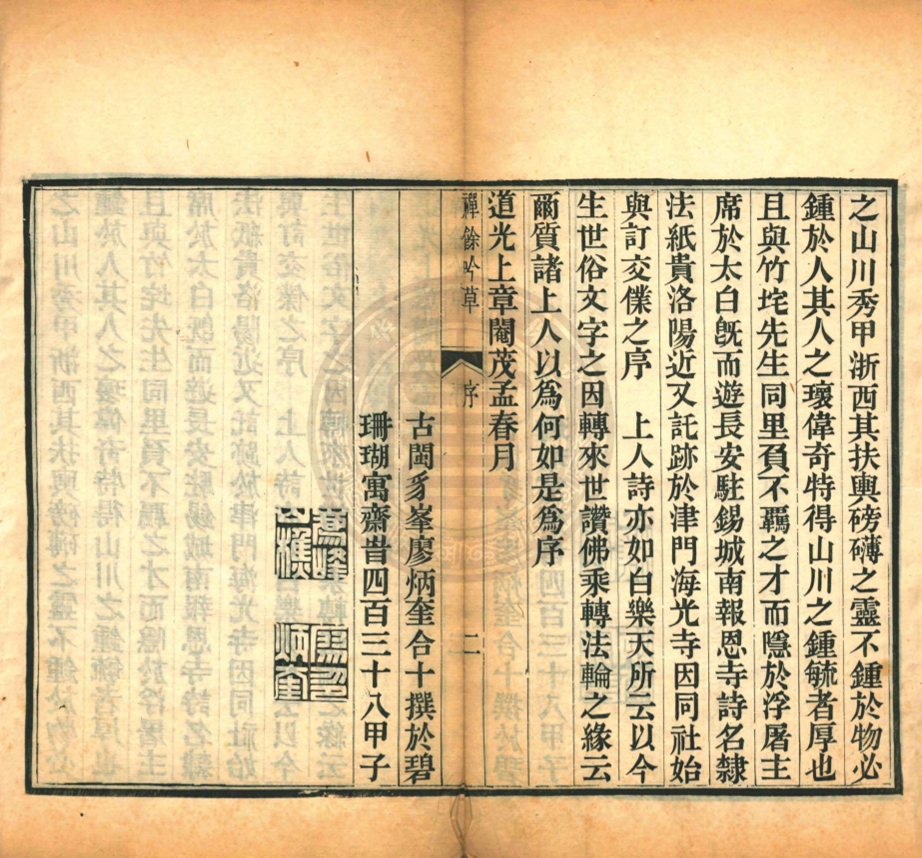 之山川秀甲浙西其扶輿磅礴之靈不鍾於物必
鍾於人其人之瓌偉奇特得山川之鍾毓者厚也
且與竹垞先生同里負不羈之才而隱於浮屠主
席於太白旣而遊長安駐錫城南報恩寺詩名隸
法紙貴洛陽近又託跡於津門海光寺因同社始
與訂交僕之序　上人詩亦如白樂天所云以今
生世俗文字之因轉來世讚佛乘轉法輪之緣云
爾質諸上人以爲何如是爲序
道光上章閹茂孟春月
禪餘吟草
序
二
古閩豸峯廖炳奎合十撰於碧
珊瑚寓齋旹四百三十八甲子